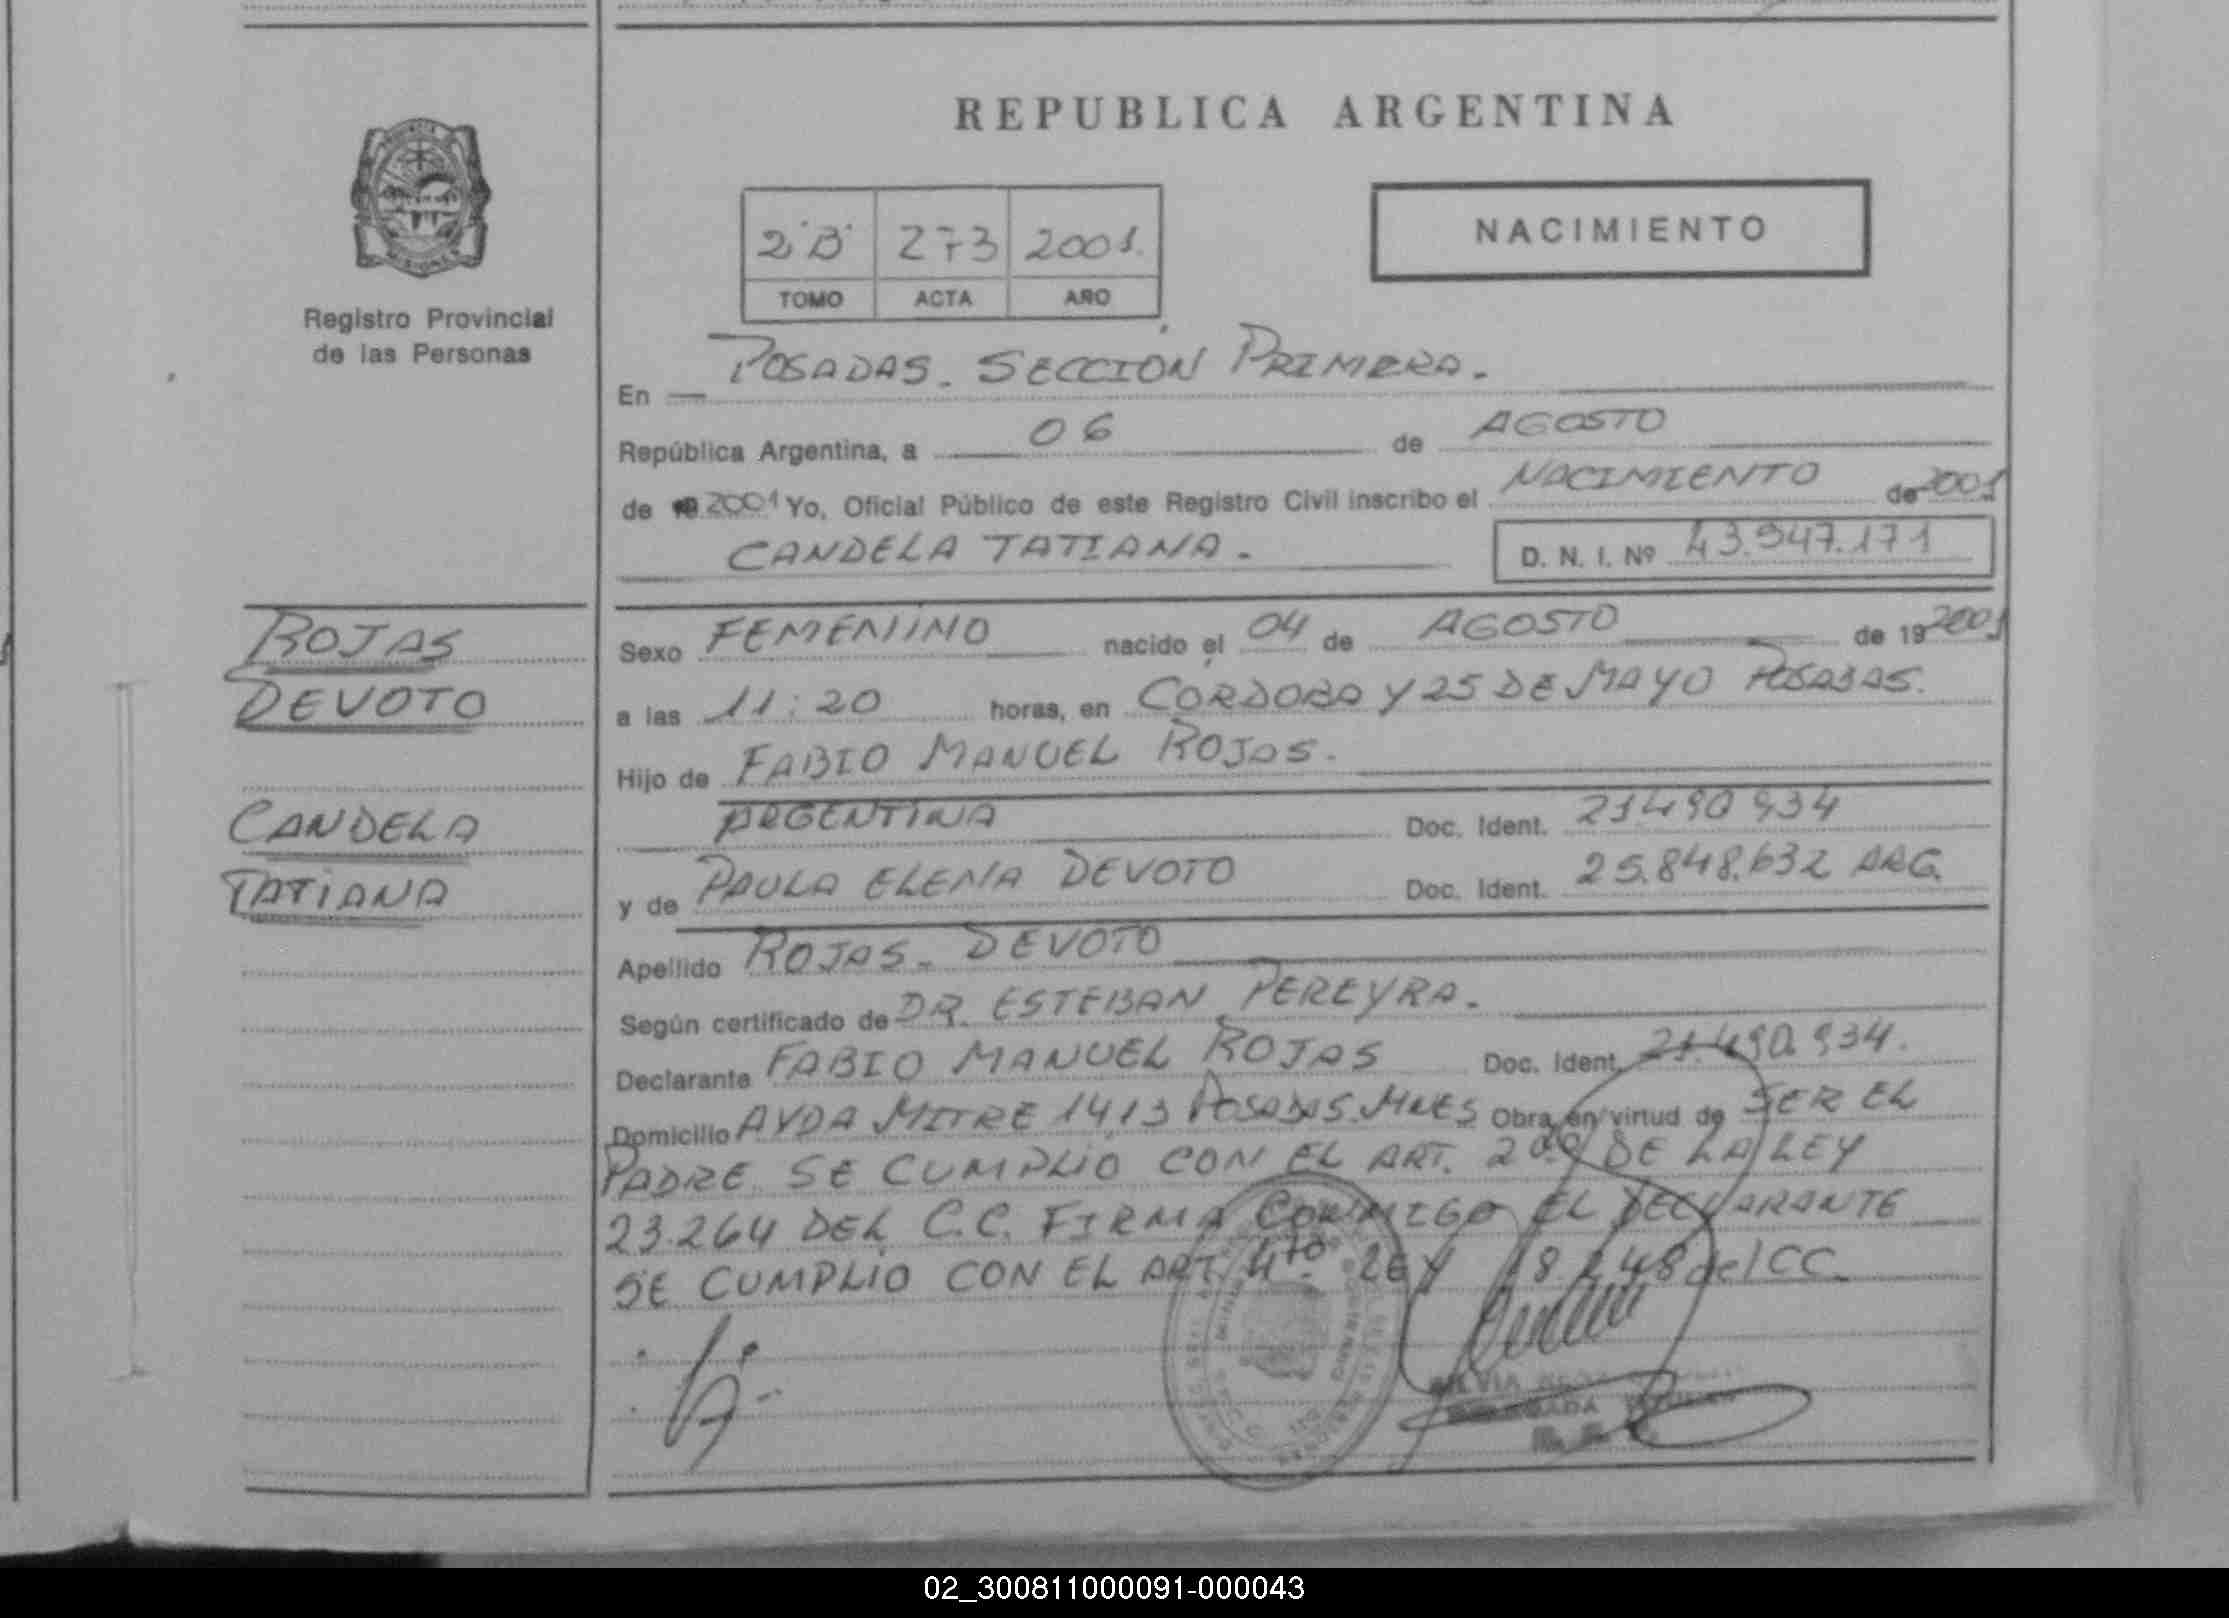 REPUBLICA ARGENTINA
2 "B" 273 2001.
TOMO ACTA AÑO
NACIMIENTO
Registro Provincial
de las Personas
En POSADAS. SECCION PRIMERA.
República Argentina, a 06 de AGOSTO
de 2001 Yo, Oficial Público de este Registro Civil inscribo el NACIMIENTO de 2001
CANDELA TATIANA. D. N. I. Nº 43.947.171
ROJAS
DEVOTO
CANDELA
TATIANA
Sexo FEMENINO nacido el 04 de AGOSTO de 19 2001
a las 11:20 horas, en CORDOBA Y 25 DE MAYO POSADAS.
Hijo de FABIO MANUEL ROJAS.
ARGENTINA Doc. Ident. 21490934
y de PAULA ELENA DEVOTO Doc. Ident. 25.848.632 ARG.
Apellido ROJAS - DEVOTO
Según certificado de DR. ESTEBAN PEREYRA.
Declarante FABIO MANUEL ROJAS Doc. Ident. 21.490.934.
Domicilio AVDA MITRE 1413 POSADAS. MNES Obra en virtud de SER EL
PADRE SE CUMPLIO CON EL ART. 2do DE LA LEY
23.264 DEL C.C. FIRMA CONMIGO EL DECLARANTE
SE CUMPLIO CON EL ART. 4to. LEY 18.248 del CC.
02_300811000091-000043